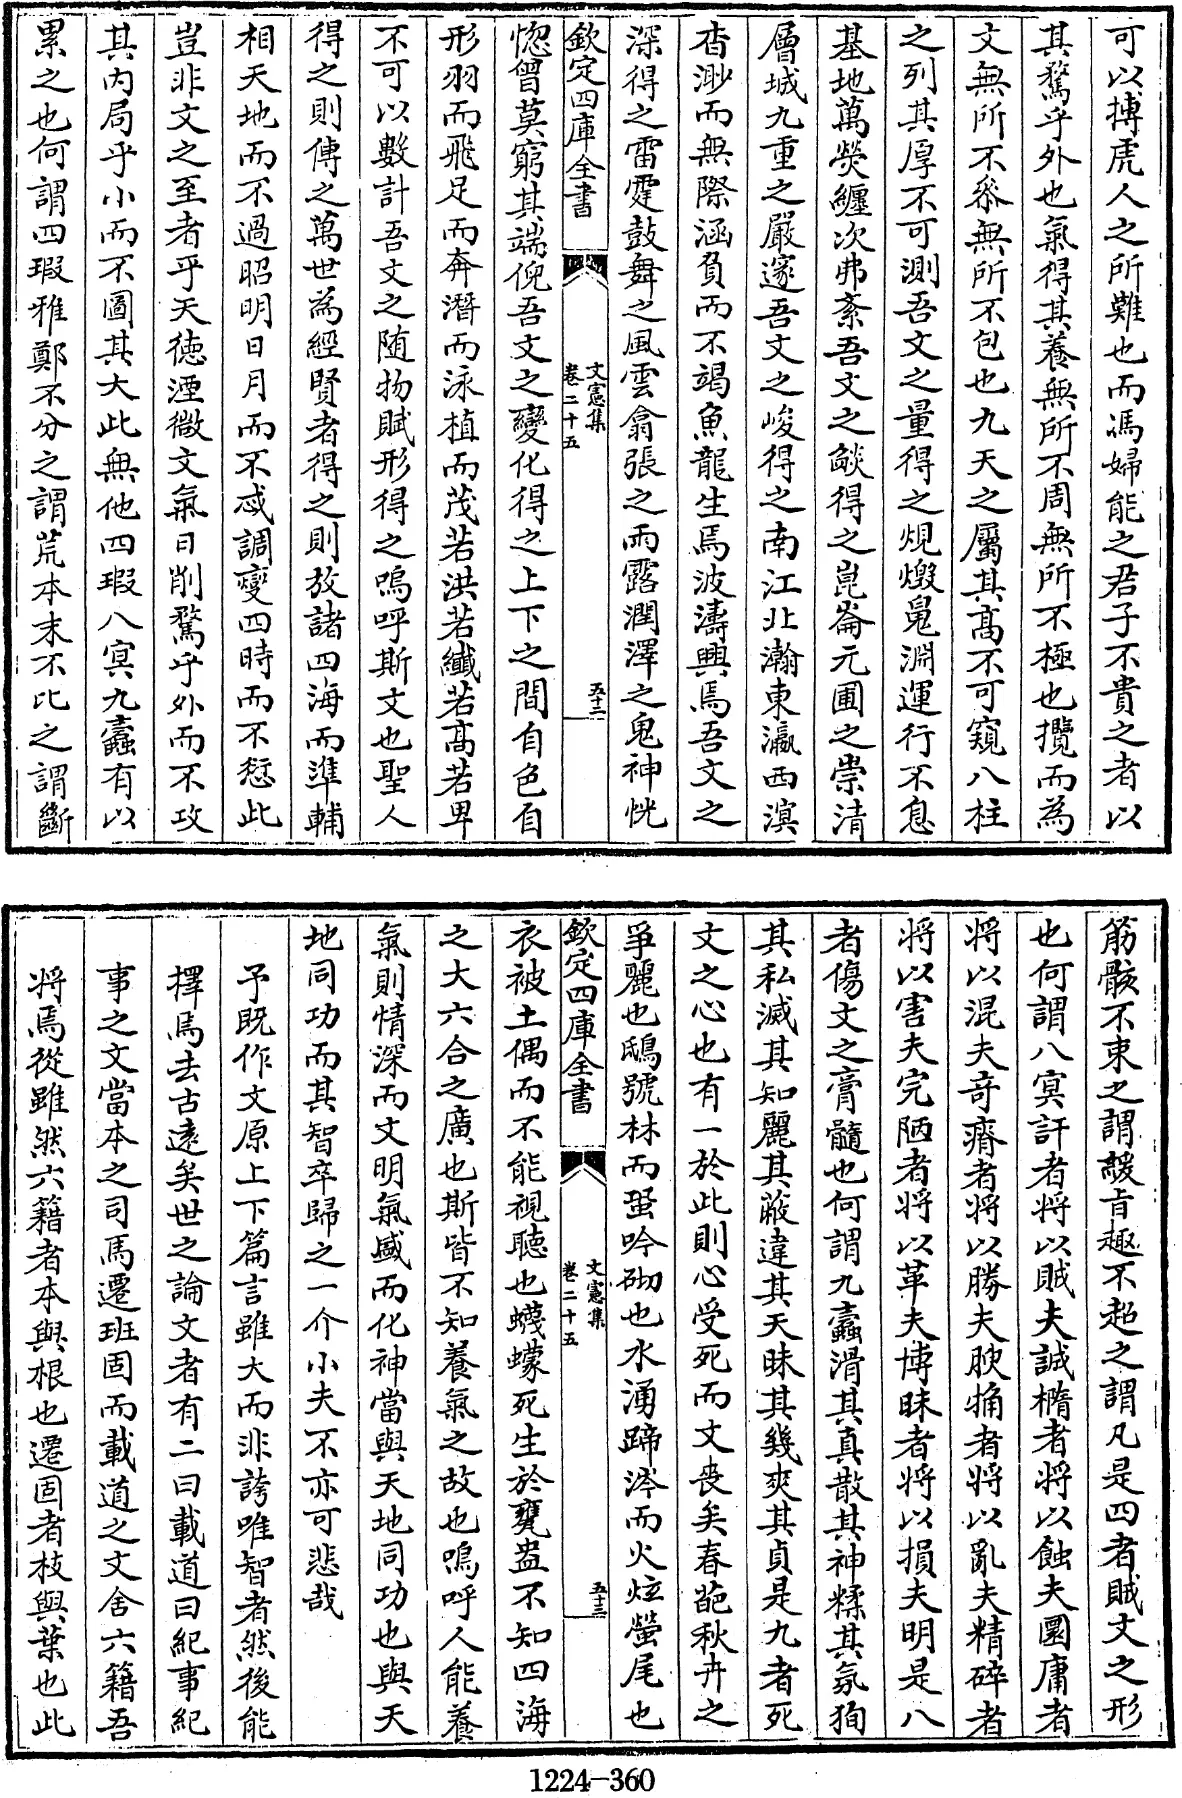 可以搏虎人之所難也而馮婦能之君子不貴之者以
其騖乎外也氣得其養無所不周無所不極也攬而為
文無所不叅無所不包也九天之屬其髙不可窺八柱
之列其厚不可測吾文之量得之焜燬鬼淵運行不息
基地萬熒纏次弗紊吾文之燄得之崑崙元圃之崇清
層城九重之嚴邃吾文之峻得之南江北瀚東瀛西溟
杳渺而無際涵負而不竭魚龍生焉波濤興焉吾文之
深得之雷霆鼓舞之風雲翕張之雨露潤澤之鬼神恍
欽定四庫全書
文憲集
卷二十五
五十二
惚曾莫窮其端倪吾文之變化得之上下之間自色自
形羽而飛足而奔潛而泳植而茂若洪若纖若髙若卑
不可以數計吾文之随物賦形得之嗚呼斯文也聖人
得之則傳之萬世為經賢者得之則放諸四海而準輔
相天地而不過昭明日月而不忒調變四時而不愆此
豈非文之至者乎天徳湮微文氣日削騖乎外而不攻
其内局乎小而不圖其大此無他四瑕八冥九蠹有以
累之也何謂四瑕雅鄭不分之謂荒本末不比之謂斷
筋骸不束之謂緩旨趣不超之謂凡是四者賊文之形
也何謂八冥訐者將以賊夫誠橢者將以蝕夫圜庸者
將以混夫奇瘠者將以勝夫腴觕者將以亂夫精碎者
將以害夫完陋者將以革夫博昧者將以損夫明是八
者傷文之膏髓也何謂九蠹滑其真散其神糅其氛狥
其私滅其知麗其蔽違其天昧其幾爽其貞是九者死
文之心也有一於此則心受死而文喪矣春葩秋卉之
爭麗也鴟號林而蛩吟砌也水湧蹄涔而火炫螢尾也
欽定四庫全書
文憲集
卷二十五
五十三
衣被土偶而不能視聽也蠛蠓死生於甕盎不知四海
之大六合之廣也斯皆不知養氣之故也嗚呼人能養
氣則情深而文明氣盛而化神當與天地同功也與天
地同功而其智卒歸之一介小夫不亦可悲哉
予既作文原上下篇言雖大而非誇唯智者然後能
擇焉去古逺矣世之論文者有二曰載道曰紀事紀
事之文當本之司馬遷班固而載道之文舍六籍吾
將焉從雖然六籍者本與根也遷固者枝與葉也此
1224-360